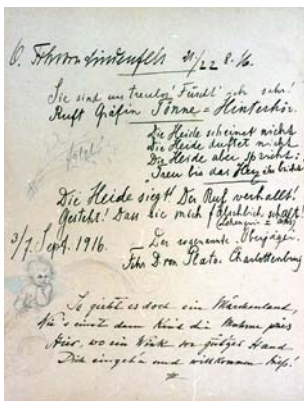 O. Frhr von Lindenfels 21/22 8.16.
Sie sind uns treulos Fürcht' ich sehr!
Ruft Gräfin Tönne = Hinterhör.
Die Heide scheinet nicht
Die Heide duftet nicht
Die Heide aber spricht:
Treu bis das Herz
falsch!
Die Heide siegt! Der Ruf verhallt!
Gesteht! Dass sie mich fälschlich schalt!
3/7. Sept. 1916.
Der sogenannte Oberjäger.
Frhr. v. Plato. Charlottenburg
So giebt es doch ein Märchenland,
Wie's einst dem Kind die Muhme pries
Hier, wo ein Wink von gütger Hand
Dich eingehn und willkommen hieß!